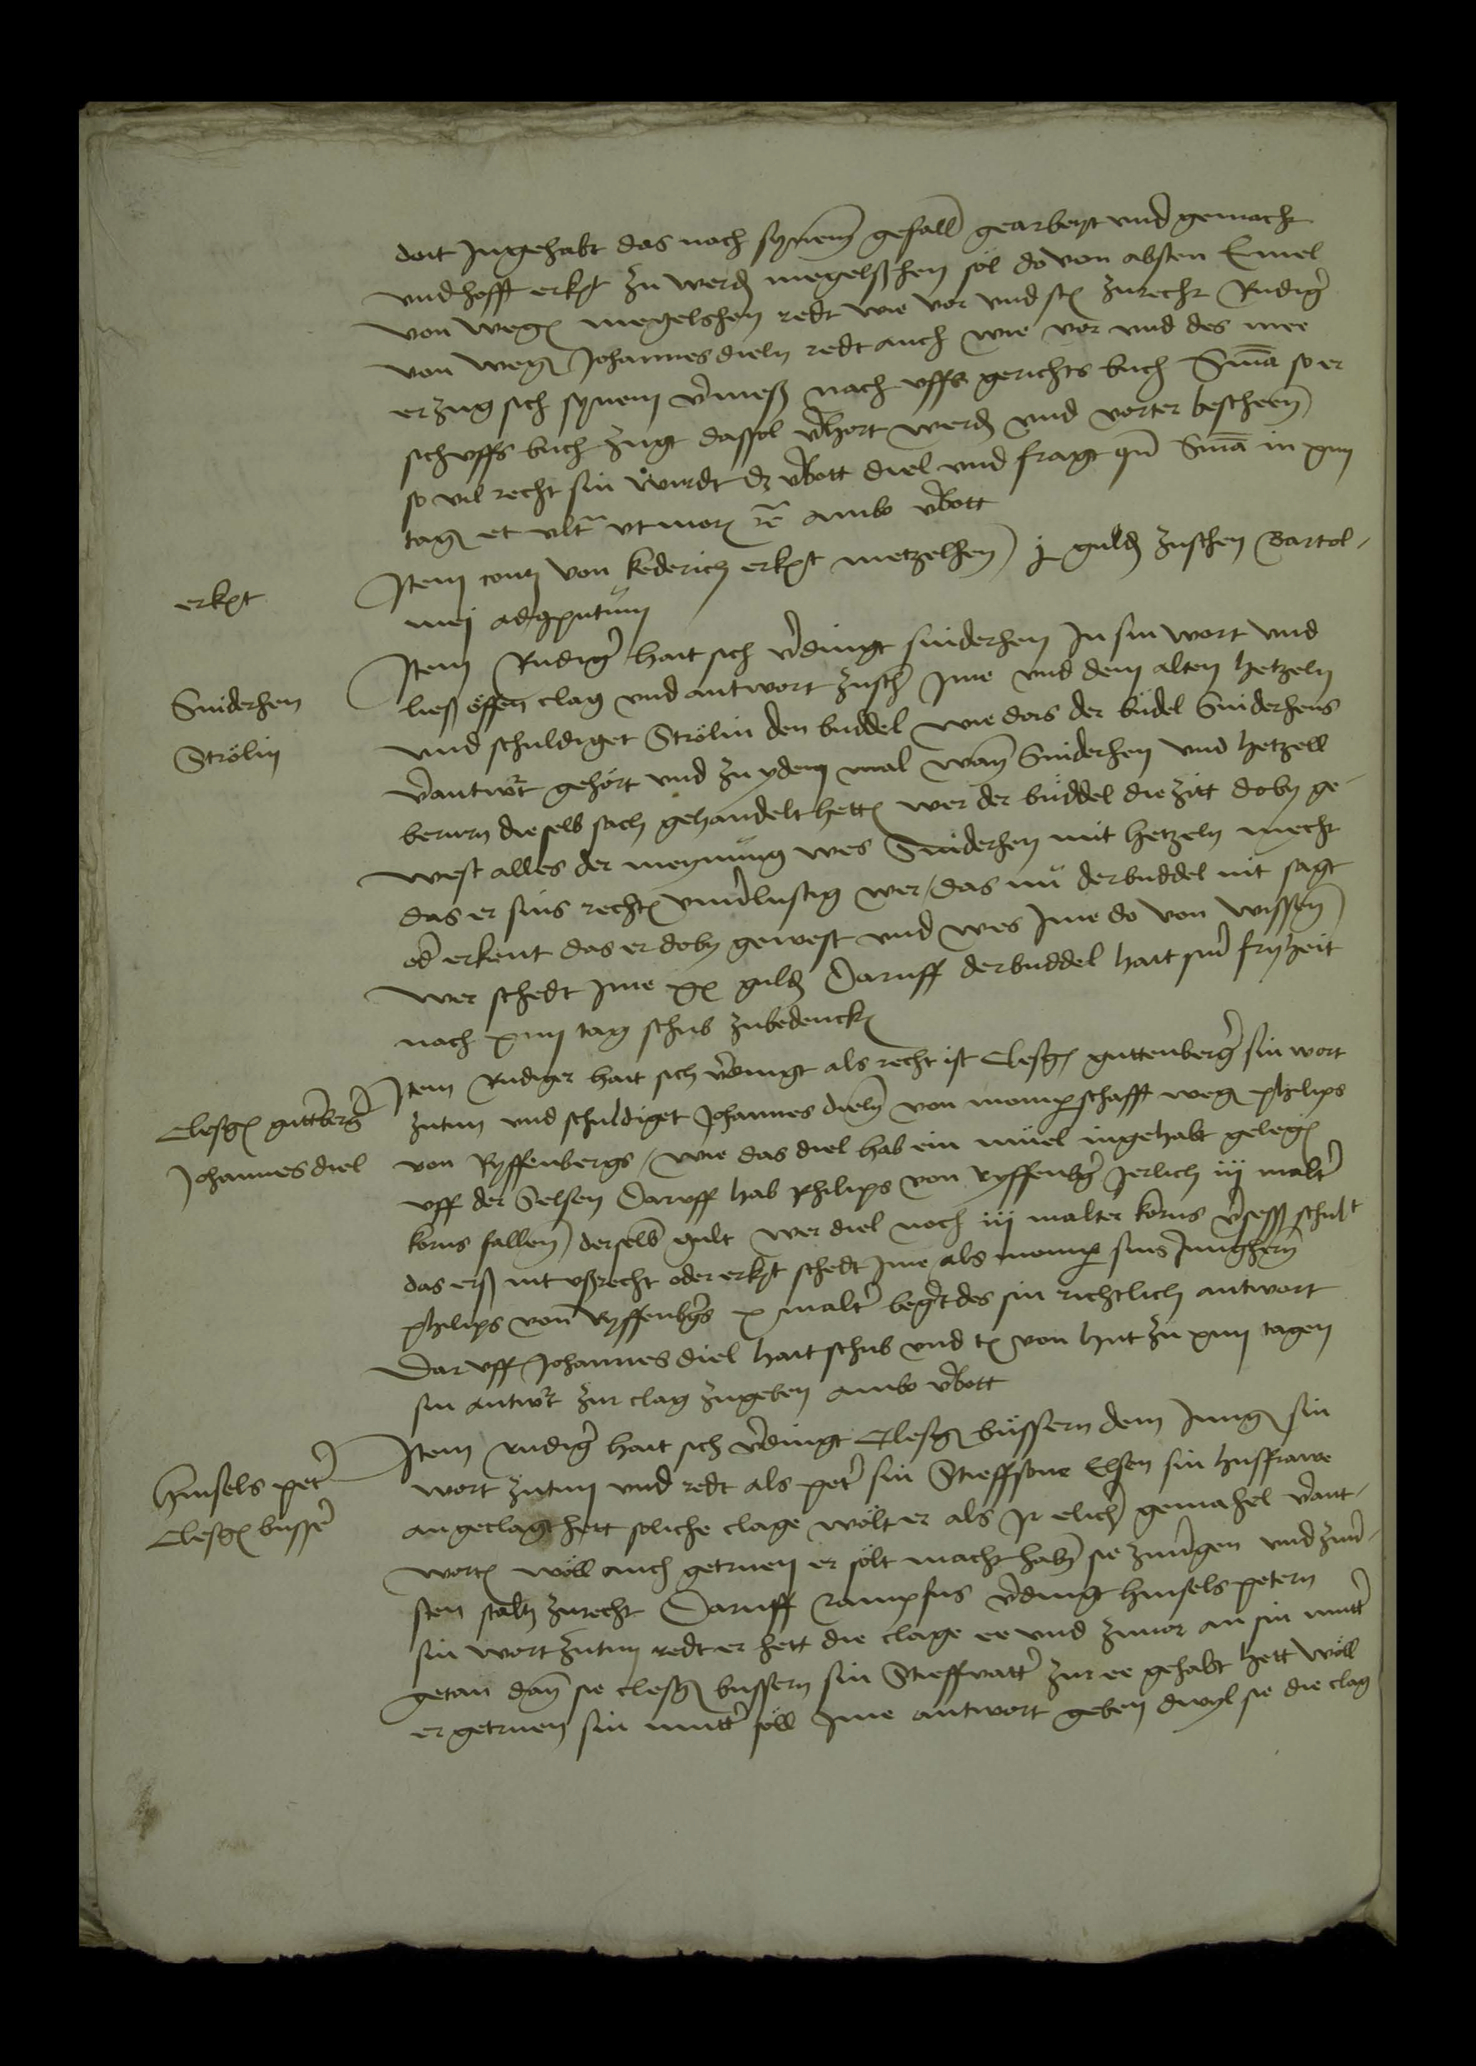 doit Ingehabt das noch synem gefall gearbeyt vnd gemacht
vnd hofft erkt zu werd megelßhen söl do von absten Emel
von weg megelshen redt wie vor vnd stz zurecht Rudig
von weg Johannes dieln redt auch wie vor vnd des mee
erzug sich synem vmeß nach vffs gerichts buch Sma so er
sich vffs buch zugt das sol vhort werd vnd vorter bescheen
so vil recht sin wirdt dz vbott diel vnd fragt qn Sma in xiiij
tag et vlt vt mor re ambo vbott
erkt
Item contz von kederich erkt metzelhen j guld zuschen Bartol-
mej ad computum
Suiderhen
Strölin
Item Rudig hait sich vdingt suiderhen In sin wort vnd
ließ öffen clag vnd antwort zusch Ime vnd dem alten hetzeln
vnd schuldiget Strölin den buddel wie das der büdel Suiderhens
vantwt gehört vnd zu ydem mal wan Suiderhen vnd hetzell
berurn dieselb sach gehandelt hett wer der büddel die zitt doby ge-
west alles der meynung wes Suiderhen mit hetzeln mecht
das er sins recht vnulustig wer das nü der buddel nit sagt
od erkent das er doby gewest vnd wes Ime do von wissen
wer schedt Ime xx guld Daruff der buddel hait sin fryheit
noch xiiij tag schub zubedenck
Clesg guttberg
Johannes diel
Item Rudiger hait sich vdingt als recht ist Clesg guttenberg sin wort
zutun vnd schuldiget Johannes dieln von momperschafft weg philips
von Ryffenbergs wie das diel hab ein müel ingehabt geleg
vff der Selsen Daruff hab philips von ryffenbg Jerlich iij malt
korns fallen derselb gult wer diel noch iij malter korns vsess schult
das erß nit vßrecht oder erkt schedt Ime als momper sins Jungherrn
philips von ryffenbgs x malt begt des sin richtlich antwort
Dar vff Johannes diel hait schub vnd tz von hut zu xiiij tagen
sin antwt zur clag zugeben ambo vbott
Hensels pet
Clesg busse
Item rudig hait sich vdingt Clesg büssern dem Jung sin
wort zutun vnd redt als pet sin Stieffsone Elsen sin husfrawe
angeclagt hett soliche clage wölt er als Ir elich gemahel vant-
wort wöll auch getruen er sölt macht hab sie zuugen vnd zuu-
sten staltz zurecht Daruff rampfus vdingt hensels petern
sin wort zutun redt er hett die clage ee vnd zuuor an sin mutt
getan dan sie clesg bussern sin Stieffvatt zur ee gehabt hett wöll
er getruen sin mutt söll Ime antwort geben dwyl sie die clag